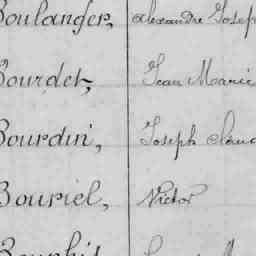 Boulanger, Alexandre Joseph
Bourdet, Jean Marie
Bourdin, Joseph Claud
Bouriel, Victor